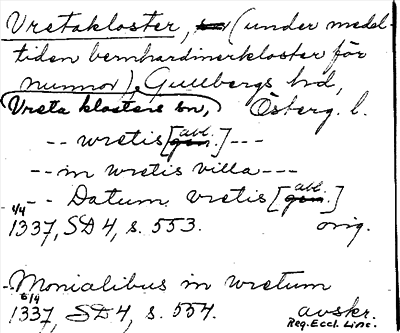 Vretakloster, (under medel-
tiden bernhardinerkloster för
nunnor), Gullbergs hd,
Vreta klosters sn, Österg. l.
-- wretis [abl.] ---
-- in wretis villa ---
-- Datum wretis [abl.]
1/4
1337, SD 4, s. 553. orig.
- Monialibus in wretum
6/4
1337, SD 4, s. 554. avskr.
Reg. Eccl. Linc.